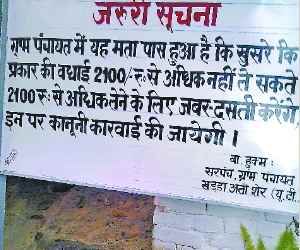 जरुरी सूचना
ग्राण पंचायत में यह मता पास हुआ है कि सुसरे कि
प्रकार की वधाई 2100/-रु.से अधिक नहीं ले सकते
2100 रु.से अधिक लेने के लिए जबर-दसती करेंगे
इन पर कानूनी कारवाई की जायेगी ।
बा. हुक्म :
सरपंच, ग्राण पंचायत
खडडा अली शेर (यू.टी.